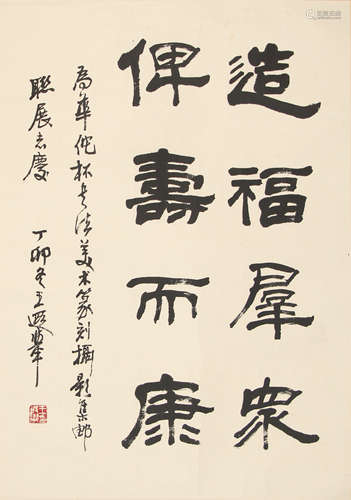 造福羣眾
俾壽而康
為華佗杯書法美术篆刻攝影集郵
聯展志慶
丁卯冬王遐舉